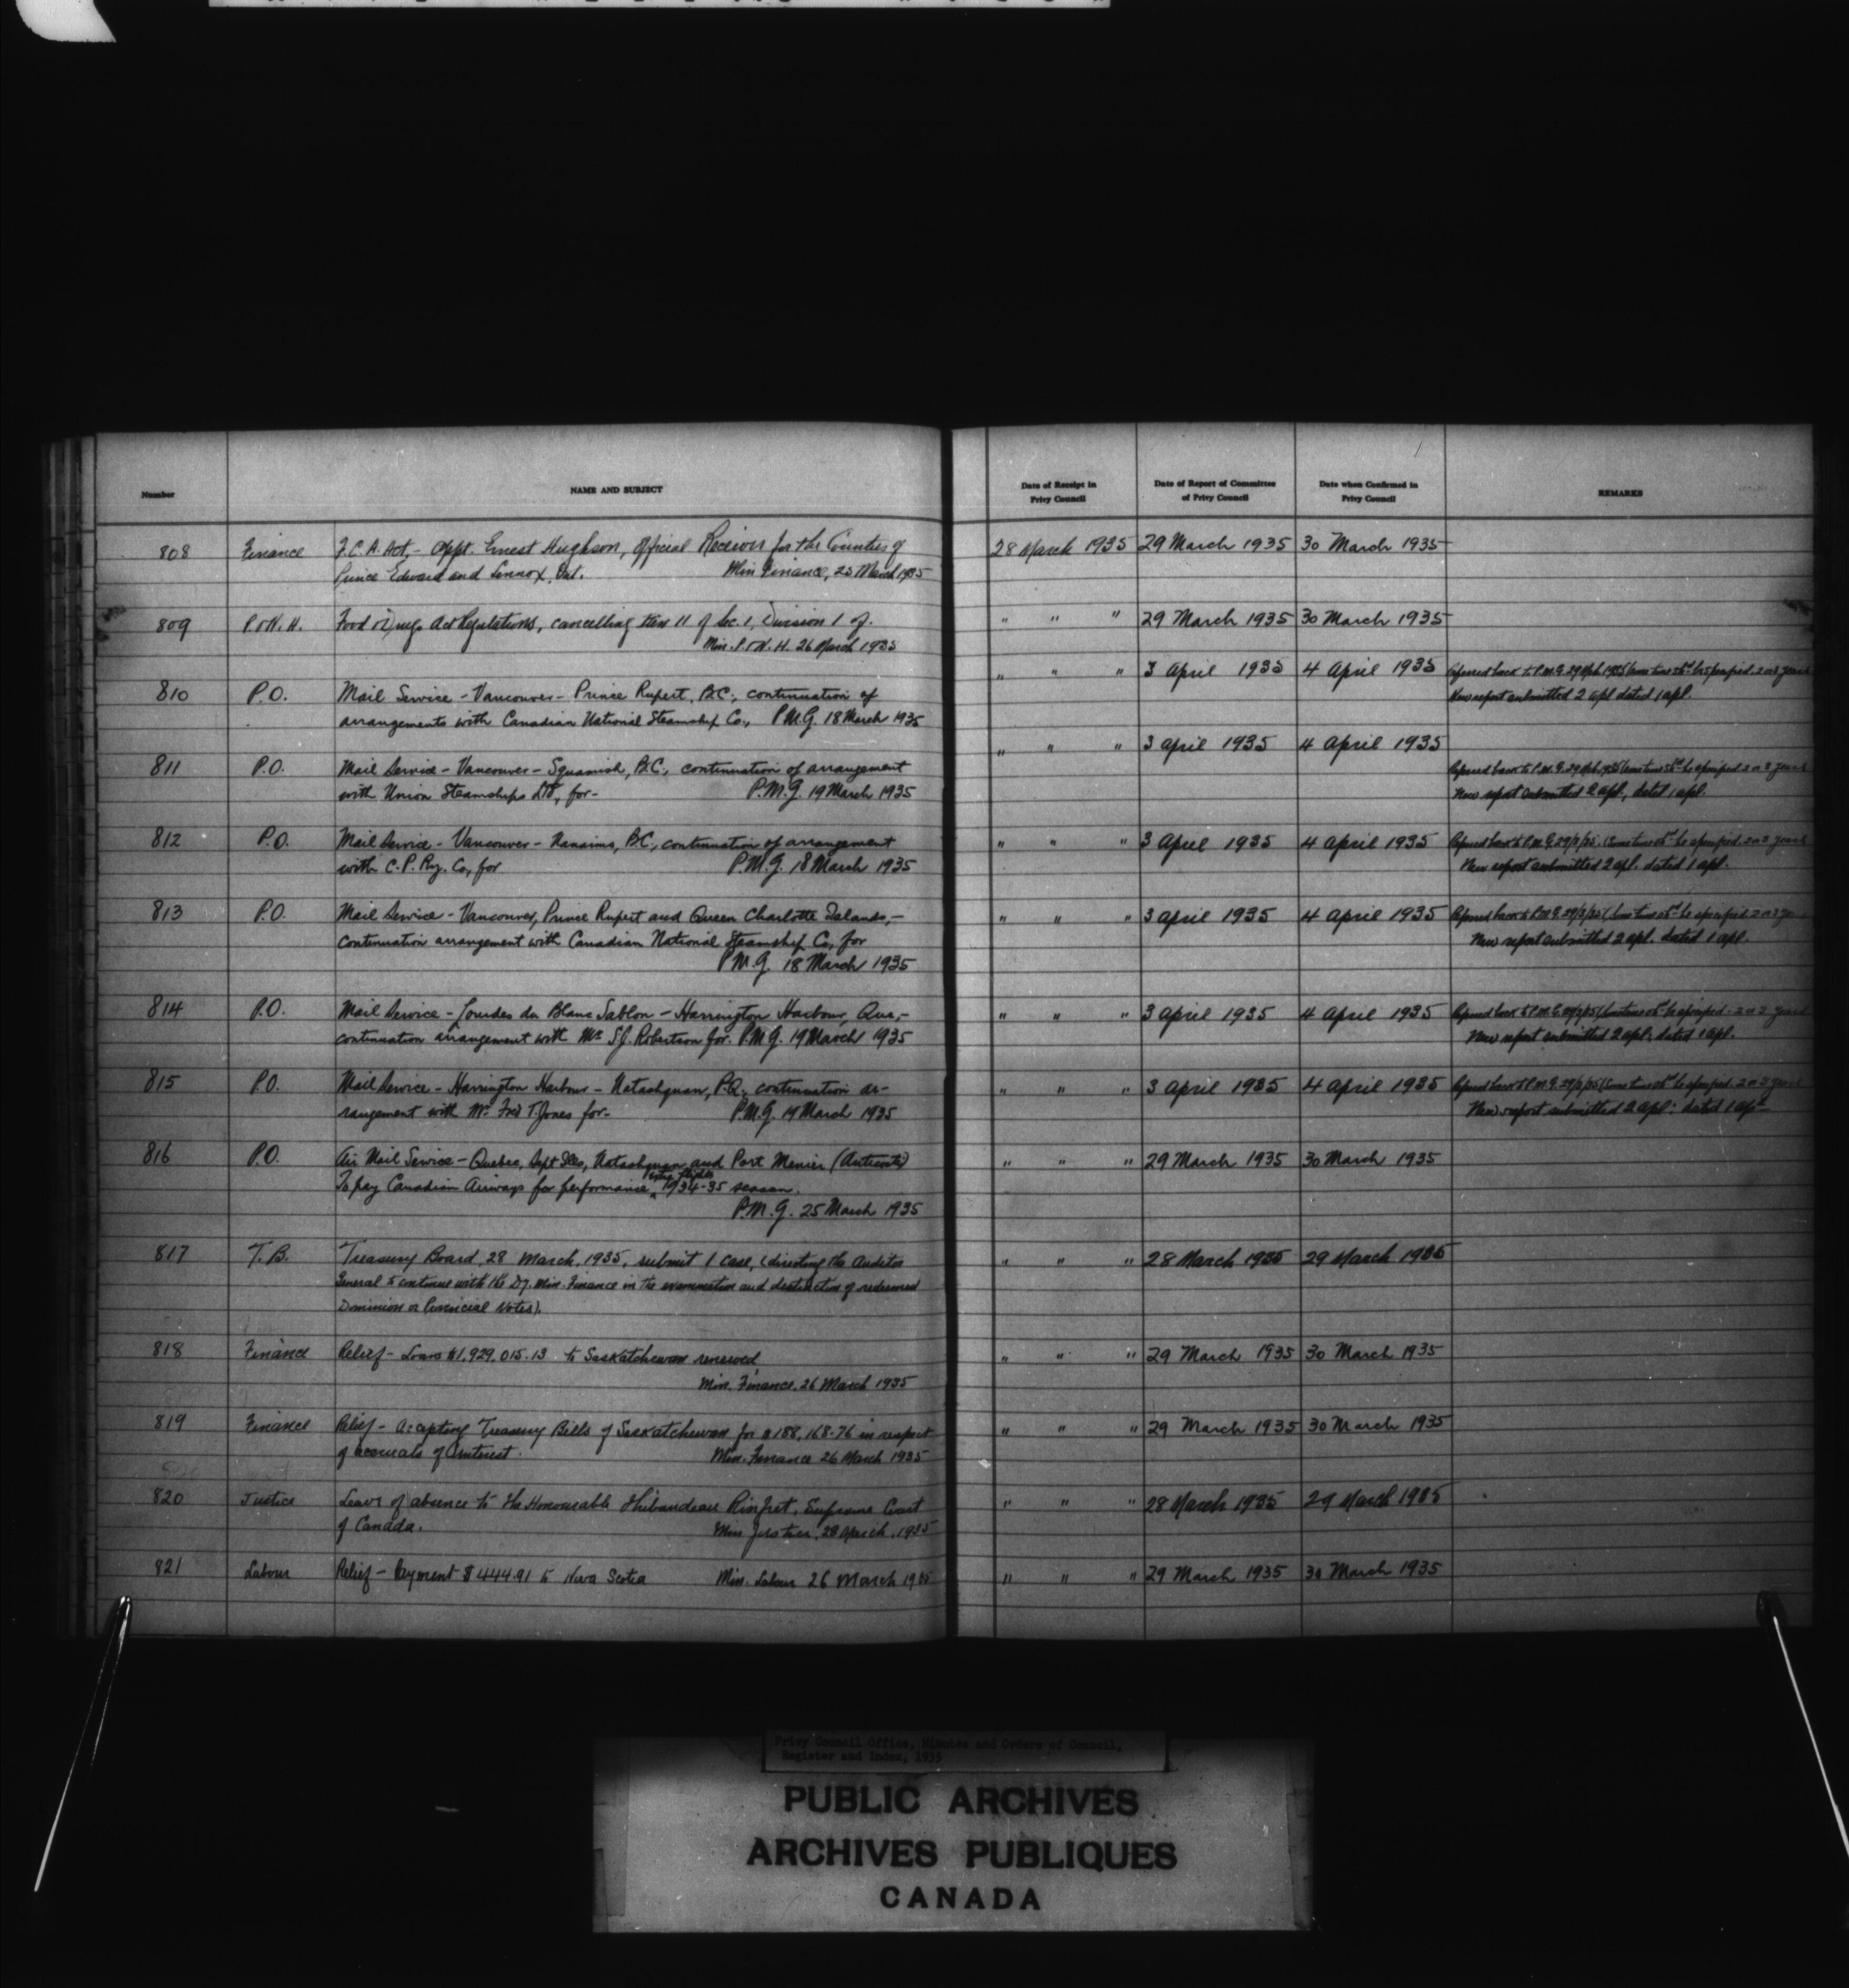 Number
NAME AND SUBJECT
Date of Receipt in
Privy Council
Date of Report of Committee
of Privy Council
Date when Confirmed in
Privy Council
REMARKS
808 Finance F.C.A. Act, - appt. Ernest Hughson, Official Receiver for the Counties of 28 March 1935 29 March 1935 30 March 1935
Prince Edward and Lennox, Ont. Min Finance, 25 March 1935
809 P. & N. H. Food & Drugs Act Regulations, cancelling item 11 of Sec. 1, Division 1 of. " " " 29 March 1935 30 March 1935
Min. P. & N. H. 26 March 1935
810 P.O. Mail Service - Vancouver - Prince Rupert, B.C., continuation of " " " 3 April 1935 4 April 1935 Referred back to P.M.G. 29 Mch. 1935
arrangements with Canadian National Steamship Co., P.M.G. 18 March 1935 New report submitted 2 apl dated 1 apl.
811 P.O. Mail Service - Vancouver - Squamish, B.C., continuation of arrangement " " " 3 April 1935 4 April 1935 Referred back to P.M.G. 29 Mch. 1935
with Union Steamships Ltd, for - P.M.G. 19 March 1935 New report submitted 2 apl, dated 1 apl.
812 P.O. Mail Service - Vancouver - Nanaimo, B.C., continuation of arrangement " " " 3 April 1935 4 April 1935 Referred back to P.M.G. 29/3/35.
with C.P. Ry. Co, for P.M.G. 18 March 1935 New report submitted 2 apl. dated 1 apl.
813 P.O. Mail Service - Vancouver, Prince Rupert and Queen Charlotte Islands, - " " " 3 April 1935 4 April 1935 Referred back to P.M.G. 29/3/35
continuation arrangement with Canadian National Steamship Co, for New report submitted 2 apl. dated 1 apl.
P.M.G. 18 March 1935
814 P.O. Mail Service - Lourdes du Blanc Sablon - Harrington Harbour, Que, - " " " 3 April 1935 4 April 1935 Referred back to P.M.G. 29/3/35
continuation arrangement with Mr S.J. Robertson for. P.M.G. 19 March 1935 New report submitted 2 apl, dated 1 apl.
815 P.O. Mail Service - Harrington Harbour - Natashquan, P.Q., continuation ar- " " " 3 April 1935 4 April 1935 Referred back to P.M.G. 29/3/35
rangement with Mr. Fred T. Jones for - P.M.G. 19 March 1935 New report submitted 2 apl: dated 1 apl
816 P.O. Air Mail Service - Quebec, Sept Iles, Natashquan and Port Menier (Anticosti) " " " 29 March 1935 30 March 1935
extra flights
To pay Canadian Airways for performance 1934-35 season.
P.M.G. 25 March 1935
817 T.B. Treasury Board, 28 March, 1935, submit 1 case, (directing the Auditor " " " 28 March 1935 29 March 1935
General to continue with the Dy. Min. Finance in the examination and destruction of redeemed
Dominion or Provincial Notes).
818 Finance Relief - Loans $1,929,015.13 to Saskatchewan renewed " " " 29 March 1935 30 March 1935
Min. Finance, 26 March 1935
819 Finance Relief - Accepting Treasury Bills of Saskatchewan for $188,168.76 in respect " " " 29 March 1935 30 March 1935
of accruals of interest. Min. Finance 26 March 1935
820 Justice Leave of absence to the Honourable Thibaudeau Rinfret, Supreme Court " " " 28 March 1935 29 March 1935
of Canada. Min Justice, 28 March, 1935
821 Labour Relief - Payment $444.91 to Nova Scotia Min. Labour 26 March 1935 " " " 29 March 1935 30 March 1935
Privy Council Office, Minutes and Orders of Council,
Register and Index, 1935
PUBLIC ARCHIVES
ARCHIVES PUBLIQUES
CANADA